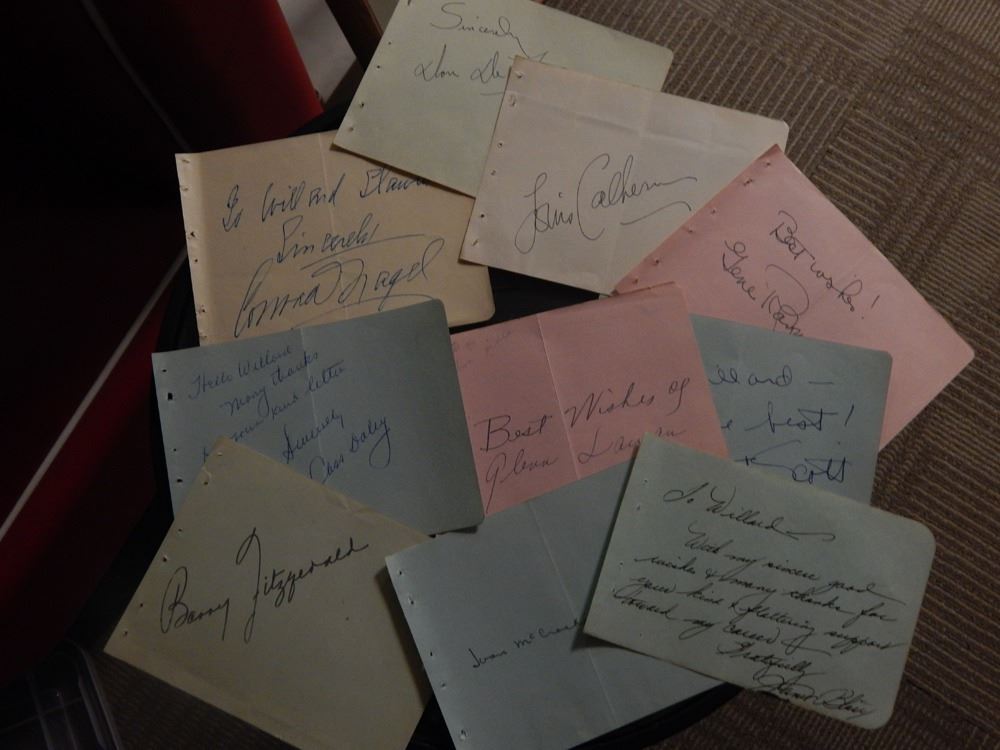 Sincerely
Don De
Louis Calhern
To Willard
Sincerely
Conrad Nagel
Best wishes!
Gene
Hello Willard
Many thanks
for your kind letter
Sincerely
Cass Daley
Best Wishes of
Glenn
illard -
e best!
Scott
Barry Fitzgerald
To Willard
With my sincere good
wishes & many thanks for
your kind & flattering support
toward my career
Gratefully